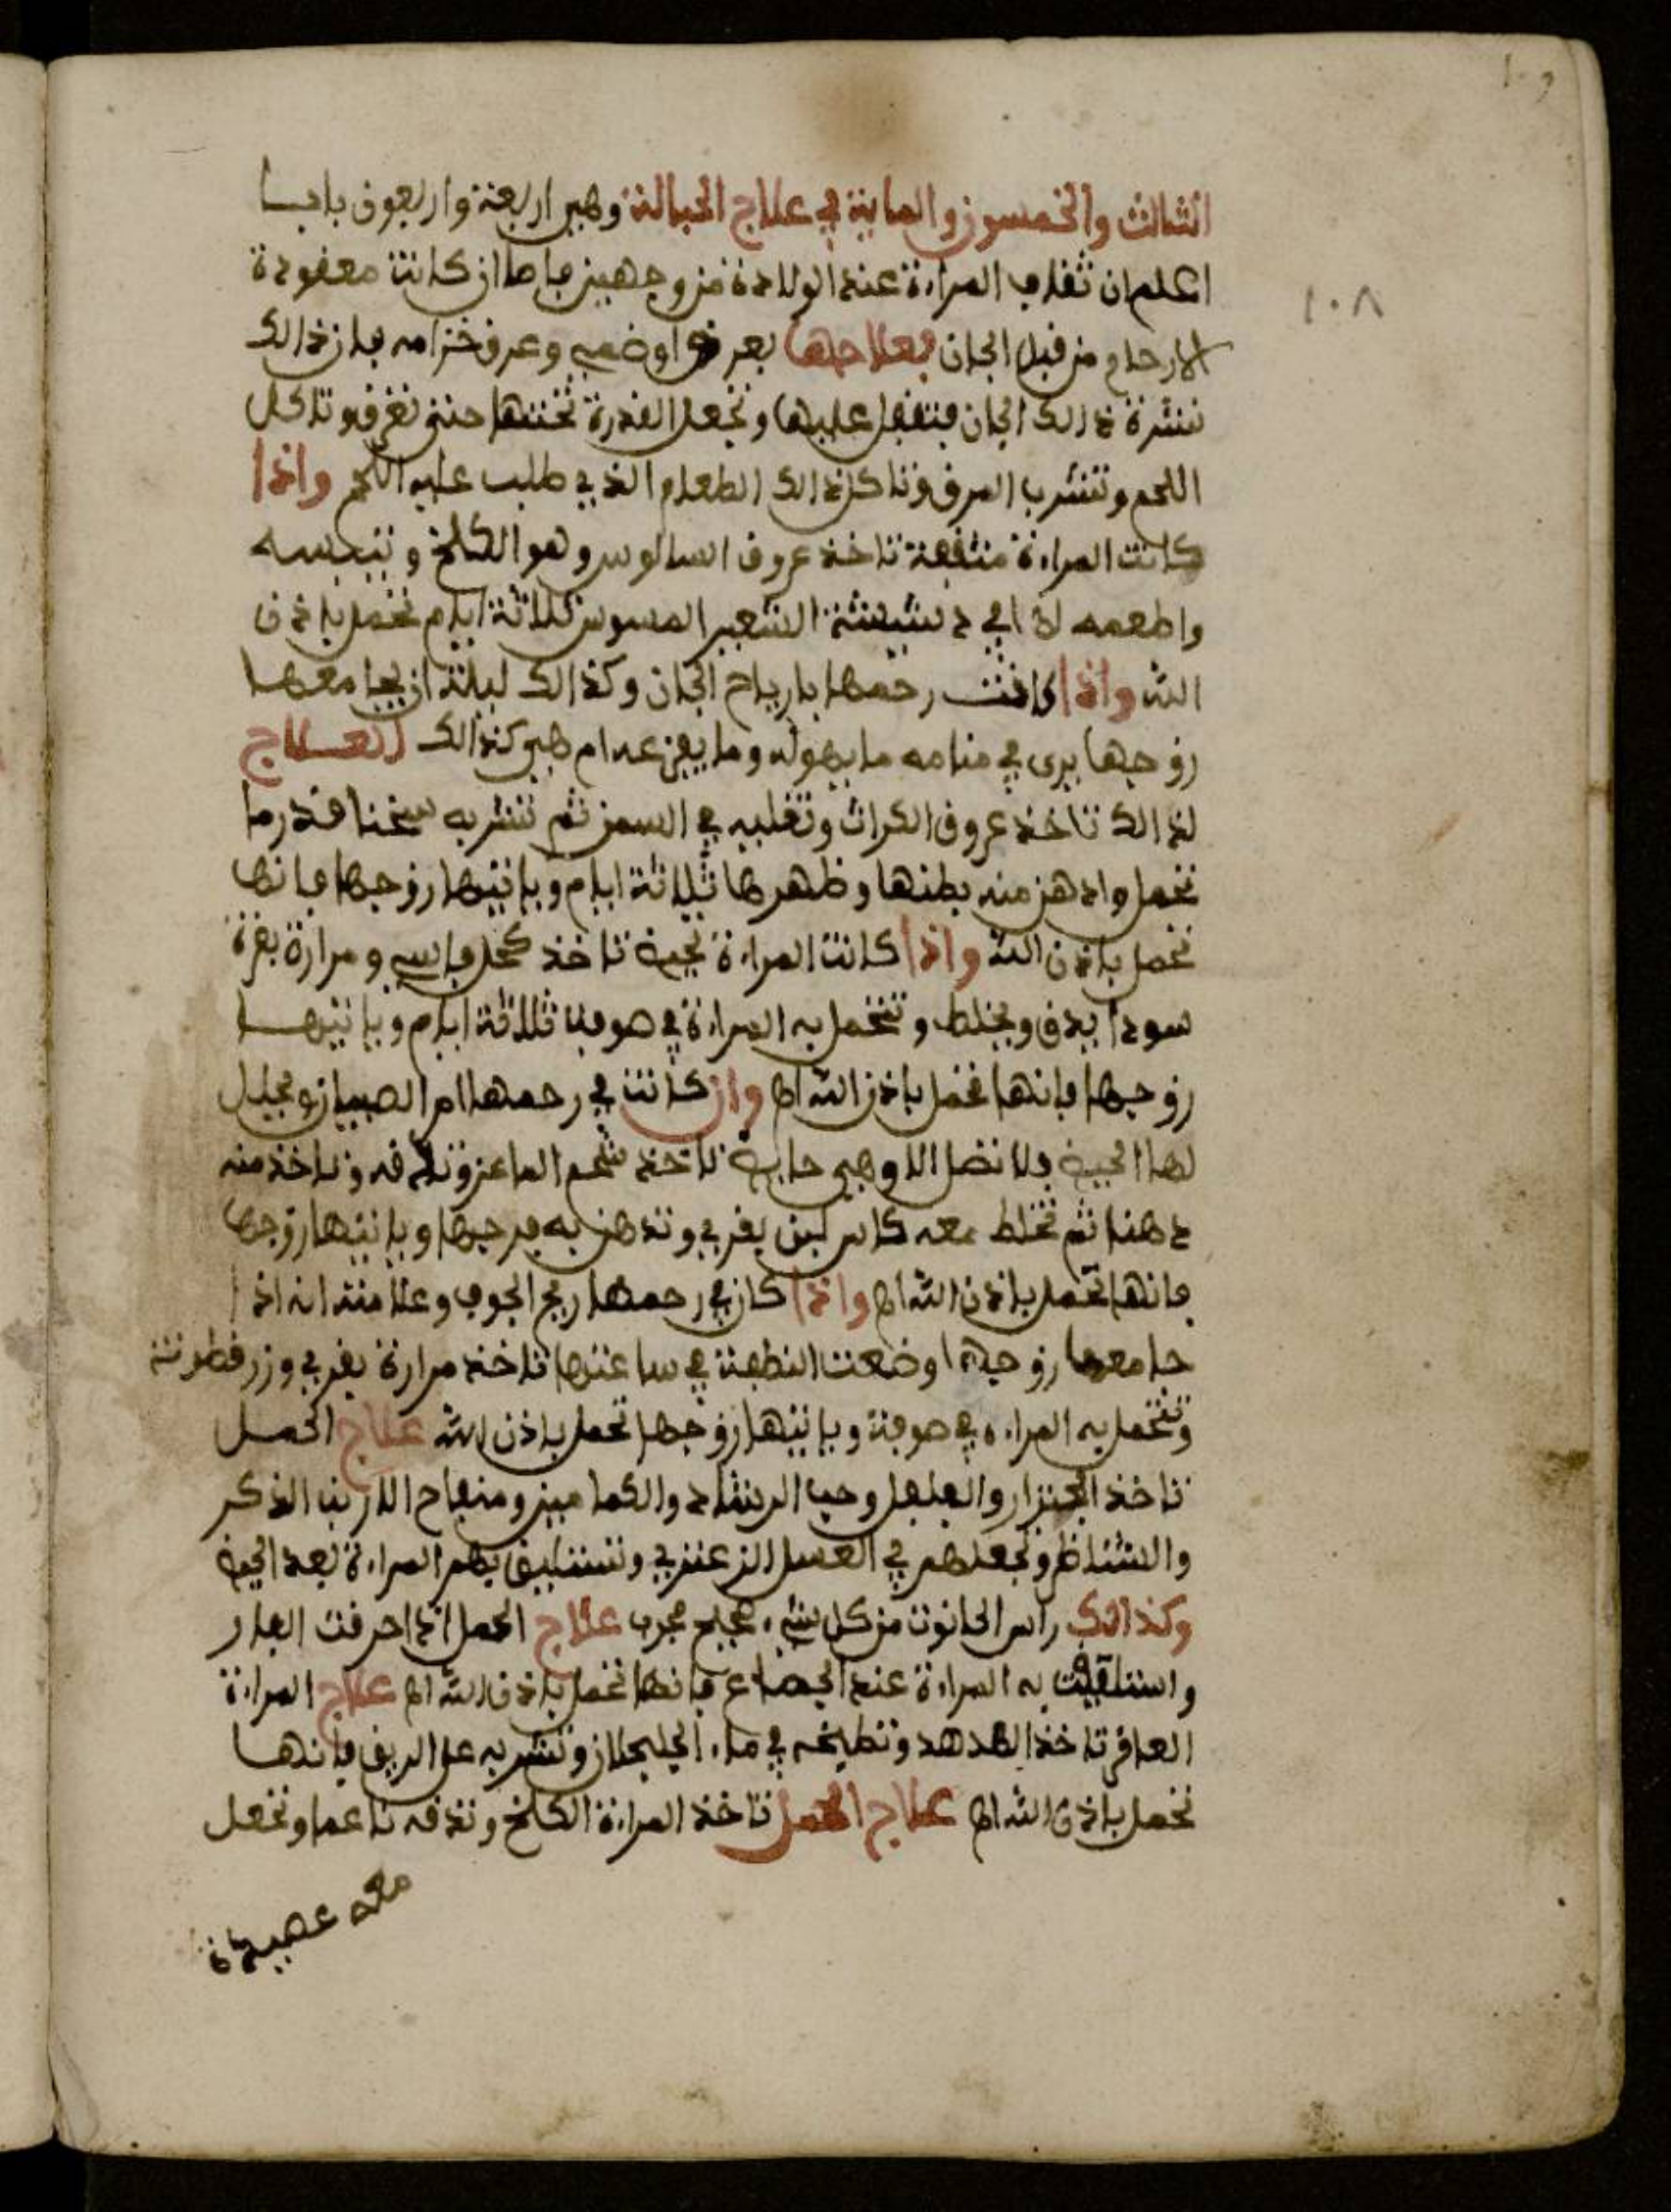 ١٠٩
الثالث والخمسون والماية في علاج الحبالة وهي اربعة واربعون بابا
اعلم ان تقلب المراءة عند الولادة من وجهين فاما ان كانت معقودة
١٠٨
الارحام من قبل الجان فعلاجها بعرق وعرق خزامه فان ذالك
نشرة ذالك الجان فتقفل عليها وتجعل القدرة تحتها حتى تعرق وتاكل
اللحم وتشرب المرق وتاكل ذالك الطعام الذي طلب عليه اللحم واذا
كانت المراءة منتفخة تاخذ عروق السالوس وهو الكلخ وتيبسه
واطعمه لها في دشيشة الشعير المسوس ثلاثة ايام تحمل باذن
الله واذا كانت رحمها بارياح الجان وكذالك ليلة ان يجامعها
زوجها يرى في منامه ما يهوله وما يفزعه ام هي كذالك العلاج
لذالك تاخذ عروق الكراث وتقليه في السمن ثم تشربه سخنا قدر ما
تحمل وادهن منه بطنها وظهرها ثلاثة ايام وياتيها زوجها فانها
تحمل باذن الله واذا كانت المراءة تاخذ كحل فاسي ومرارة بقرة
سودا يدق ويخلط وتتحمل به المراءة في صوفة ثلاثة ايام وياتيها
زوجها فانها تحمل باذن الله اه وان كانت في رحمها ام الصبيان
لها الحيضة فلا تضل الا وهي تاخذ شحم الماعز وتدقه وتاخذ منه
دهنا ثم تخلط معه كاس لبن بقري وتدهن به فرجها وياتيها زوجها
فانها تحمل باذن الله اه واذا كان في رحمها ريح الجوف وعلامته انه اذا
جامعها زوجها وضعت النطفة في ساعتها تاخذ مرارة بقري وزرقطونة
وتتحمل به المراءة في صوفة وياتيها زوجها تحمل باذن الله علاج الحمل
تاخذ الجنزار والفلفل وحب الرشاد والكمامين ومنفاح الارنب الذكر
وتجعلهم في العسل الزعتري وتستليق بهم المراءة بعد الحيضة
وكذالك راس الحانوت من كل شيء صحيح مجرب علاج الحمل اذا احرقت الفار
واستلقيت به المراءة عند الجماع فانها تحمل باذن الله اه علاج المراءة
العاقر تاخذ الهدهد وتطبخه في ماء الجلجلان وتشربه على الريق فانها
تحمل باذن الله اه علاج الحمل تاخذ المراءة الكلخ وتدقه ناعما وتجعل
معه عصيدة